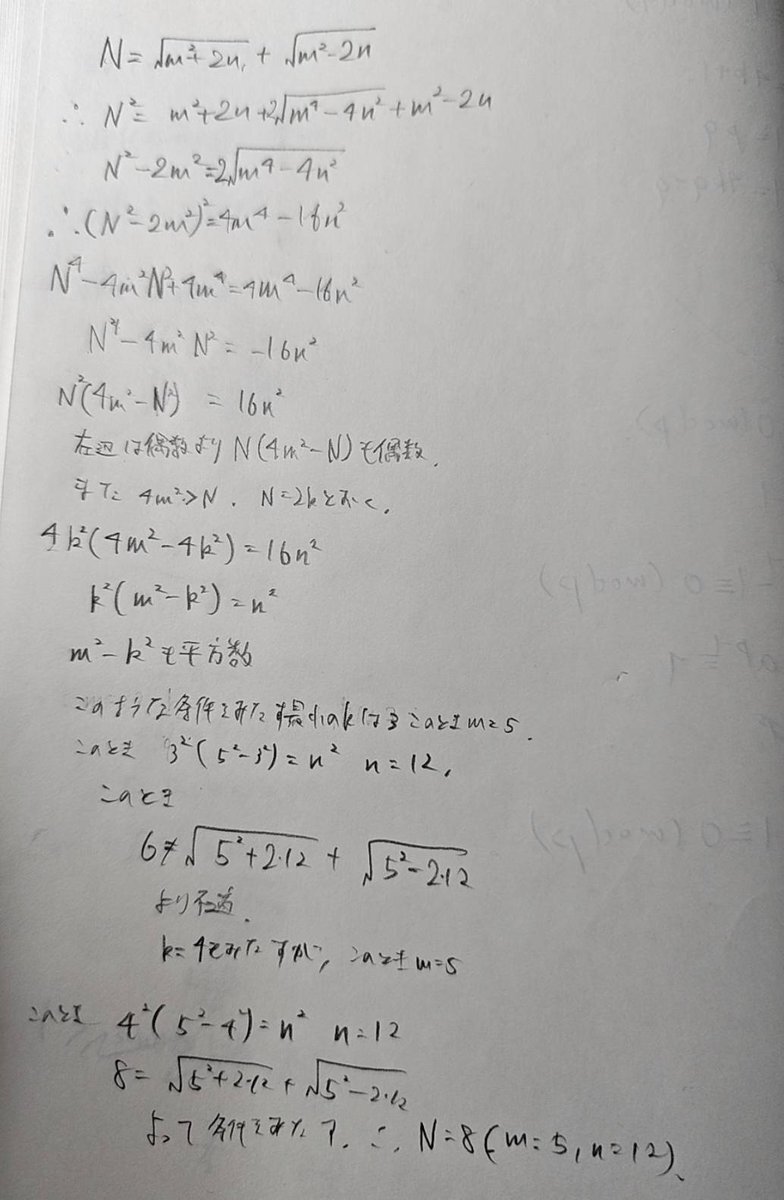 N = √(m²+2n) + √(m²-2n)
∴ N² = m²+2n+2√(m⁴-4n²)+m²-2n
N²-2m²=2√(m⁴-4n²)
∴(N²-2m²)²=4m⁴-16n²
N⁴-4m²N²+4m⁴=4m⁴-16n²
N⁴-4m²N²=-16n²
N²(4m²-N²) = 16n²
左辺は偶数より N(4m²-N)も偶数.
また 4m²>N. N=2kとおく.
4k²(4m²-4k²)=16n²
k²(m²-k²)=n²
m²-k²も平方数
このような条件をみたす最小のkは3 このときm=5.
このとき 3²(5²-3²)=n² n=12.
このとき
6≠√(5²+2·12) + √(5²-2·12)
より不適.
k=4もみたすが, このときm=5
このとき 4²(5²-4²)=n² n=12
8=√(5²+2·12)+√(5²-2·12)
よって条件をみたす. ∴ N=8(m=5, n=12).